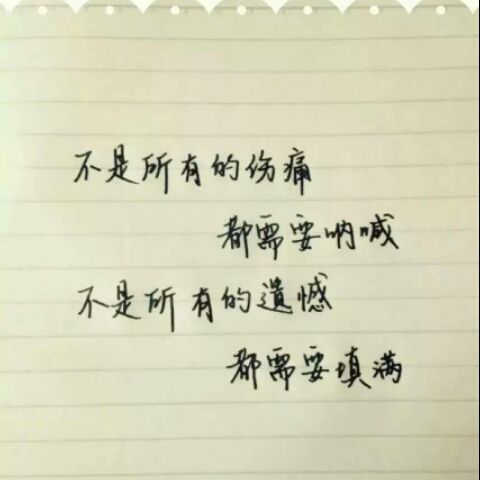 不是所有的伤痛
都需要呐喊
不是所有的遗憾
都需要填满